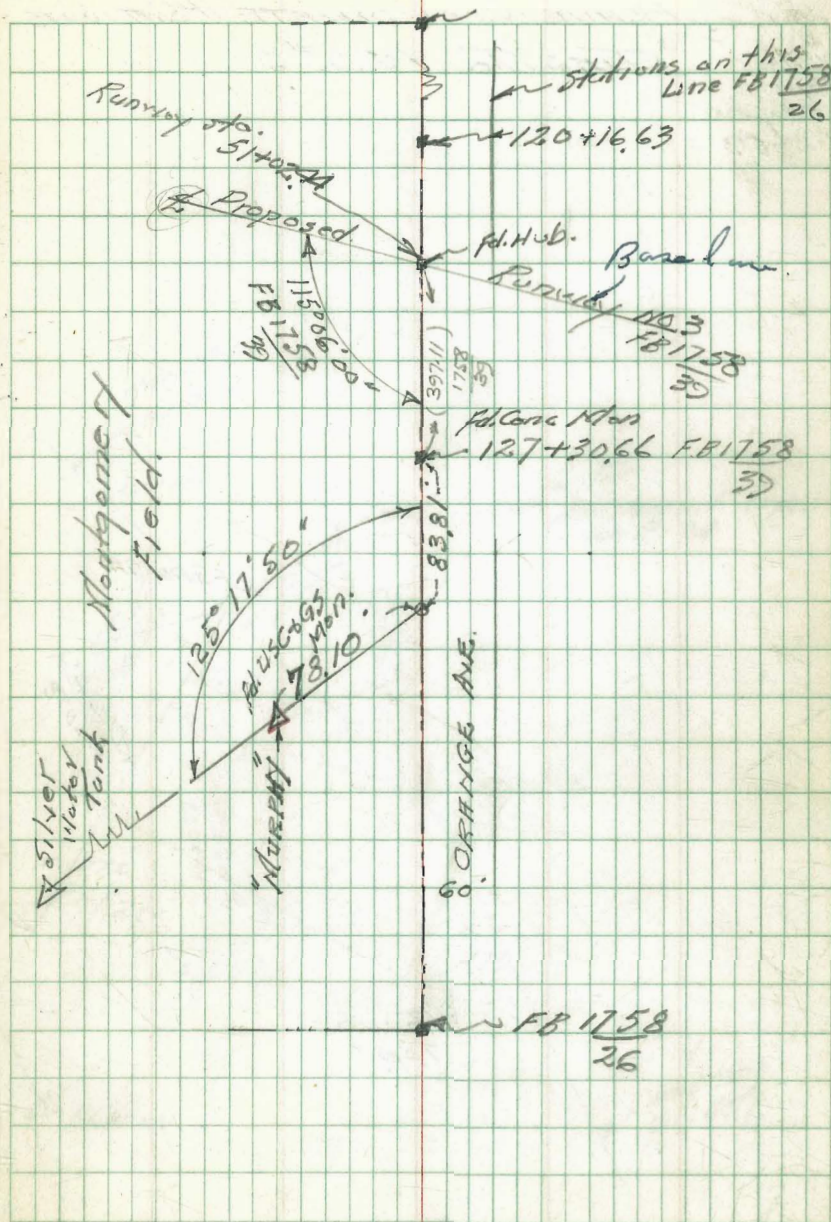 Stations on this
Line FB 1758
26
120+16.63
Runway sta.
51+02.44
℄ Proposed
Fd. Hub.
Base line
Runway No 3
FB 1758
39
115°06'00"
FB 1758
(397.11)
1758
39
Fd. Conc Mon
127+30.66 FB 1758
39
Montgomery
Field.
83.81
125° 17' 50"
Fd. USC&GS
Mon.
78.10
"MURPHY"
Silver
Water
Tank
60'
ORANGE AVE.
FB 1758
26